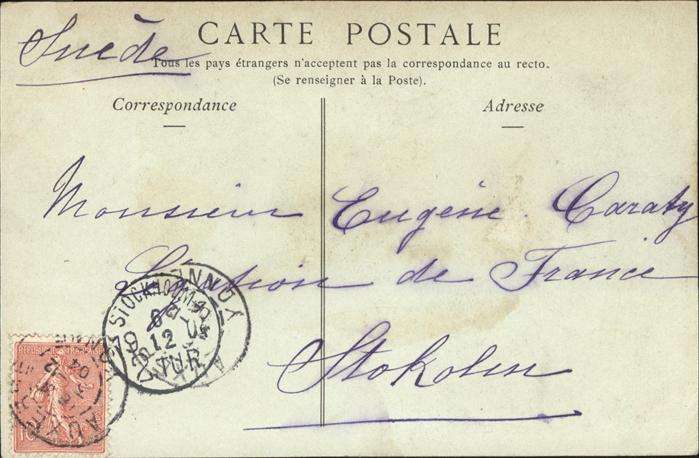 Suède
CARTE POSTALE
Tous les pays étrangers n'acceptent pas la correspondance au recto.
(Se renseigner à la Poste).
Correspondance
Adresse
Monsieur Eugène Caraty
Légation de France
Stokolm
STOCKHOLM
12
TUR
YONNE